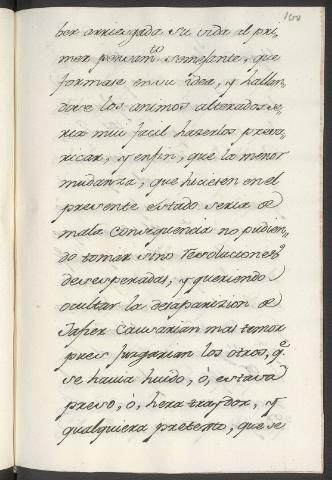 100
ber arriesgada su vida al pri
mer pensam.to semejante, que
formase en su idea, y hallan
dose los animos alterados se
ria mui facil haserlos preva
ricar, y enfin, que la menor
mudanza, que hiciesen en el
presente estado seria de
mala consequencia no pudien
do tomar sino resoluciones
desesperadas, y queriendo
ocultar la desaparizion de
Jafier causarian mas temor
pues jurgarian los otros, q.e
se havia huido, ó, estava
preso, ó, hera traydor, y
qualquiera pretexto, que se